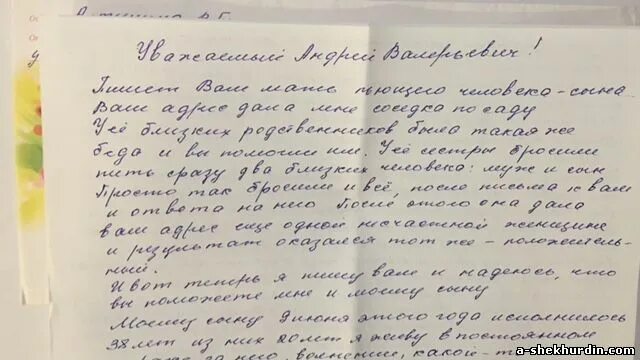 Уважаемый Андрей Валерьевич!
Пишет Вам мать пьющего человека-сына
Ваш адрес дала мне соседка по саду
У её близких родственников была такая же
беда и вы помогли им. У её сестры бросили
пить сразу два близких человека: муж и сын
Просто так бросили и всё, после письма к вам
и ответа на него После этого она дала
ваш адрес ещё одной несчастной женщине
и результат оказался тот же - положитель-
ный.
И вот теперь я пишу вам и надеюсь, что
вы поможете мне и моему сыну
Моему сыну 9 июня этого года исполнилось
38 лет из них 20 лет я живу в постоянном
за него, волнение, какой
a-shekhurdin.com